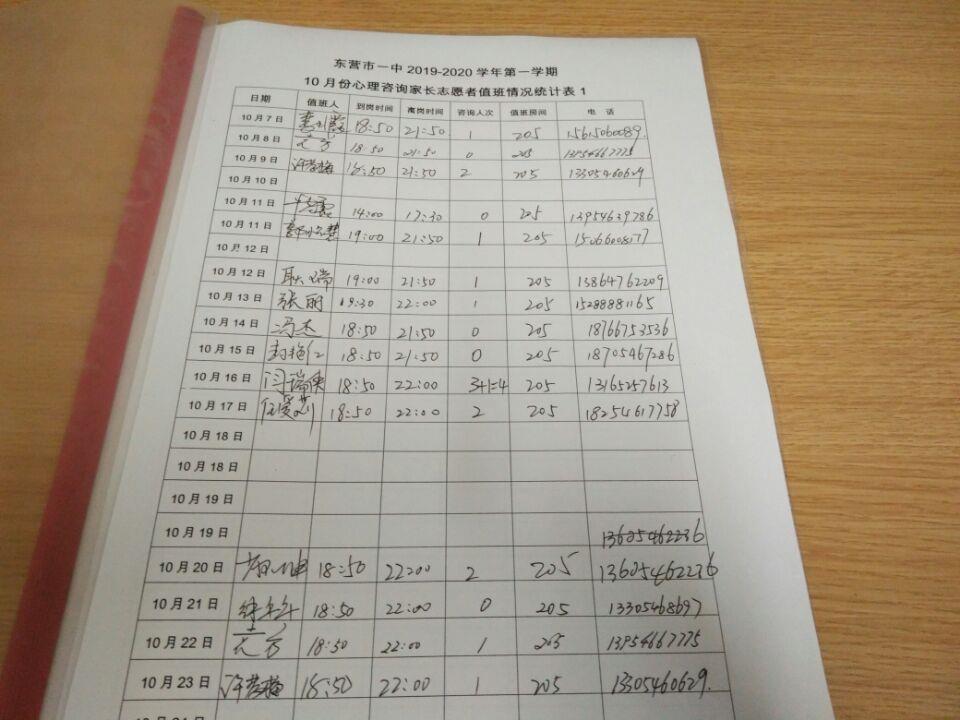 东营市一中 2019-2020 学年第一学期
10 月份心理咨询家长志愿者值班情况统计表 1
日期 值班人 到岗时间 离岗时间 咨询人次 值班房间 电 话
10 月 7 日 18:50 21:50 1 205 15615060089
10 月 8 日 18:50 21:50 0 205 13954667775
10 月 9 日 18:50 21:50 2 205 13305460629
10 月 10 日
10 月 11 日 14:00 17:30 0 205 13954639786
10 月 11 日 19:00 21:50 1 205 15066008177
10 月 12 日
10 月 12 日 19:00 21:50 1 205 13864762209
10 月 13 日 张丽 19:30 22:00 1 205 15288881165
10 月 14 日 冯杰 18:50 21:50 0 205 18766753536
10 月 15 日 18:50 21:50 0 205 18705467286
10 月 16 日 18:50 22:00 3+1=4 205 13165257613
10 月 17 日 18:50 22:00 2 205 18254617758
10 月 18 日
10 月 18 日
10 月 19 日
10 月 19 日 13605462236
10 月 20 日 18:50 22:00 2 205 13605462236
10 月 21 日 18:50 22:00 0 205 13305468697
10 月 22 日 18:50 22:00 1 205 13954667775
10 月 23 日 18:50 22:00 1 205 13305460629